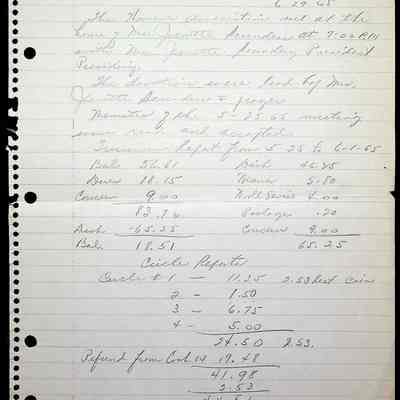 6-29-65
The Women's Association met at the
home of Mrs. Juanita Saunders at 7:00 P.M.
with Mrs. Saunders President
Presiding.
The devotion were lead by Mrs.
Saunders & prayer
Minutes of the 5-25-65 meeting
were read and accepted.
Treasurer Report from 5-25 to 6-1-65
Bal. 56.61 Disb 46.45
Dues 18.15 5.80
9.00 4.00
83.76 Postage .20
Disb -65.25 9.00
Bal. 18.51 65.25
Circle Reports
Circle #1 — 11.25 2.53 least coin
2 — 1.50
3 — 6.75
4 — 5.00
24.50 2.53
Refund from 14 17.48
41.98
2.53